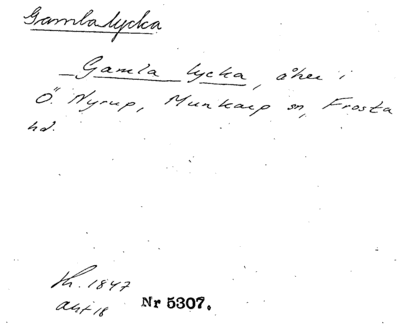 Gamlalycka
Gamla lycka, åker i
Ö. Nyrup, Munkarp sn, Frosta
hd.
1847
akt 18 Nr 5307.